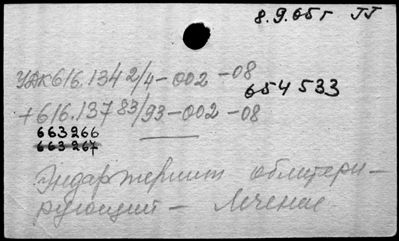 8.9.05г JJ
УДК616.134 2/4-002-08
654 533
+616.137 83/93-002-08
663266
663267
Эндартериит облитери-
рующий - Лечение